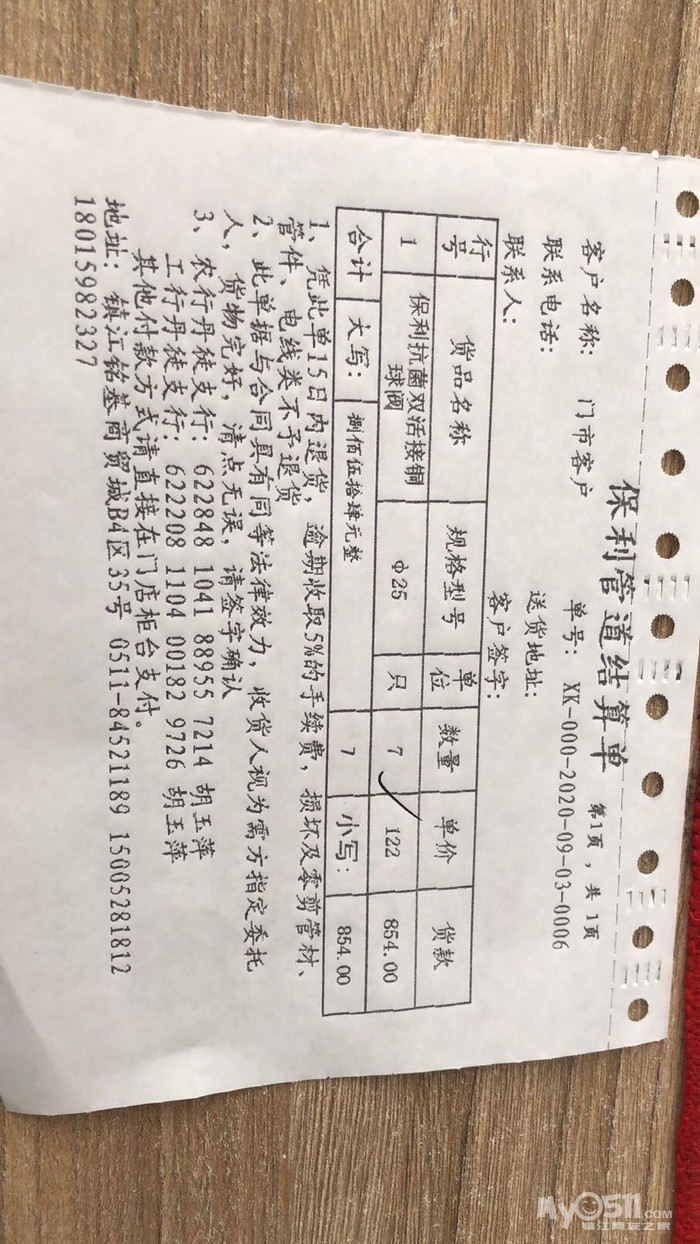 保利管道结算单
第1页，共1页
客户名称: 门市客户 单号: XK-000-2020-09-03-0006
联系电话: 送货地址:
联系人: 客户签字:
行号 货品名称 规格型号 单位 数量 单价 货款
1 保利抗菌双活接铜球阀 Φ25 只 7 122 854.00
合计 大写: 捌佰伍拾肆元整 7 小写: 854.00
1、凭此单15日内退货，逾期收取5%的手续费，损坏及零剪管材、
管件、电线类不予退货
2、此单据与合同具有同等法律效力，收货人视为需方指定委托
人，货物完好，清点无误，请签字确认
3、农行丹徒支行: 622848 1041 88955 7214 胡玉萍
工行丹徒支行: 622208 1104 00182 9726 胡玉萍
其他付款方式请直接在门店柜台支付。
地址: 镇江铭基商贸城B4区35号 0511-84521189 15005281812
18015982327
My0511.com
镇江网友之家